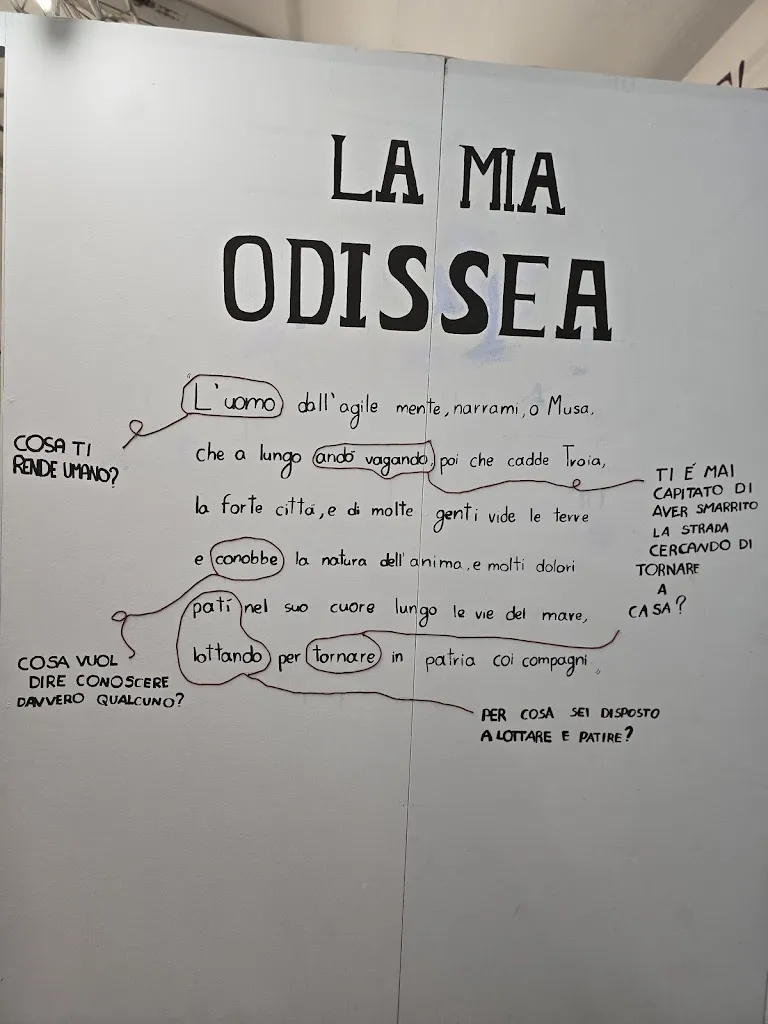 LA MIA
ODISSEA
"L'uomo dall'agile mente, narrami, o Musa,
che a lungo andò vagando, poi che cadde Troia,
la forte città, e di molte genti vide le terre
e conobbe la natura dell'anima, e molti dolori
patì nel suo cuore lungo le vie del mare,
lottando per tornare in patria coi compagni"
COSA TI
RENDE UMANO?
TI É MAI
CAPITATO DI
AVER SMARRITO
LA STRADA
CERCANDO DI
TORNARE
A
CASA?
COSA VUOL
DIRE CONOSCERE
DAVVERO QUALCUNO?
PER COSA SEI DISPOSTO
A LOTTARE E PATIRE?